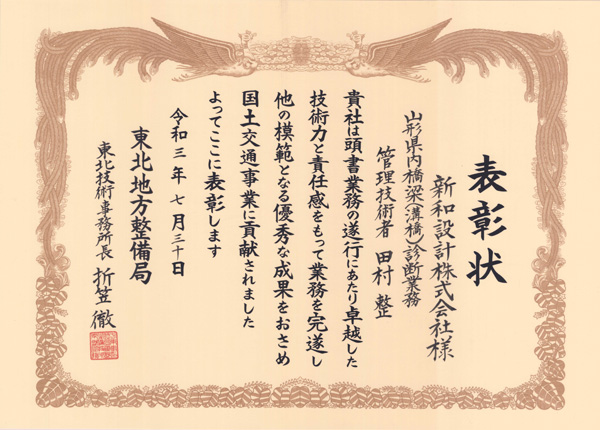 表彰状
新和設計株式会社様
山形県内橋梁(溝橋)診断業務
管理技術者 田村 整
貴社は頭書業務の遂行にあたり卓越した
技術力と責任感をもって業務を完遂し
他の模範となる優秀な成果をおさめ
国土交通事業に貢献されました
よってここに表彰します
令和三年七月三十日
東北地方整備局
東北技術事務所長 折笠 徹